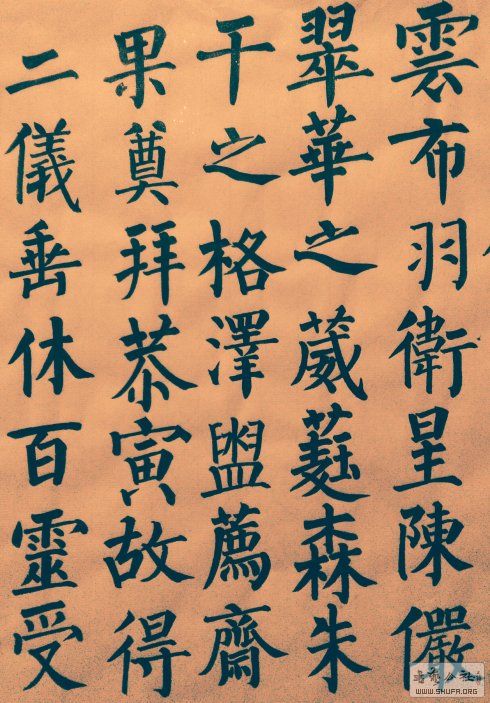 雲布羽衛星陳儼
翠華之葳蕤森朱
干之格澤盥薦齋
果奠拜恭寅故得
二儀垂休百靈受
書法公社
WWW.SHUFA.ORG